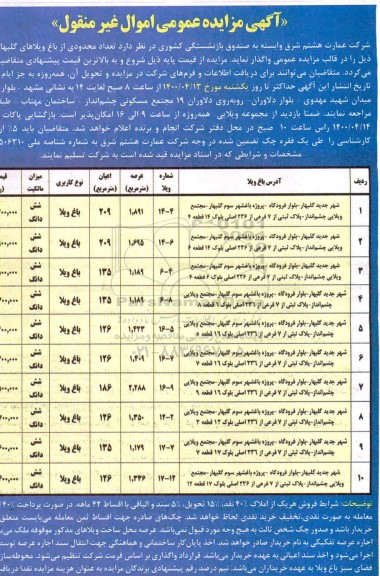 «آگهی مزایده عمومی اموال غیر منقول»
شرکت عمارت هشتم شرق وابسته به صندوق بازنشستگی کشوری در نظر دارد تعداد محدودی از باغ ویلاهای گلبهار
ذیل را در قالب مزایده عمومی واگذار نماید. مزایده از قیمت پایه ذیل شروع و به بالاترین قیمت پیشنهادی متقاضیان
می‌گردد. متقاضیان می‌توانند برای دریافت اطلاعات و فرم‌های شرکت در مزایده و تحویل آن، همه‌روزه به جز ایام
تاریخ انتشار این آگهی حداکثر تا روز یکشنبه مورخ ۱۴۰۰/۰۴/۱۳ از ساعت ۸ صبح لغایت ۱۴ به نشانی مشهد - بلوار
میدان شهید مهدوی - بلوار دلاوران - روبه‌روی دلاوران ۱۹ مجتمع مسکونی چشم‌انداز - ساختمان مهتاب - طبقه
مراجعه نمایند. ضمنا بازدید از مجموعه ویلایی همه‌روزه از ساعت ۹ الی ۱۶ امکان‌پذیر است. بازگشایی پاکات
۱۴۰۰/۰۴/۱۴ راس ساعت ۱۰ صبح در محل دفتر شرکت انجام و برنده اعلام خواهد شد. متقاضیان باید ۵٪ از
کارشناسی را طی یک فقره چک تضمین شده در وجه شرکت عمارت هشتم شرق به شماره شناسه ملی
مشخصات و شرایطی که در اسناد مزایده قید شده است به شرکت تسلیم نمایند.
ردیف آدرس باغ ویلا شماره ویلا عرصه (مترمربع) اعیان (مترمربع) نوع کاربری میزان مالکیت
۱ شهر جدید گلبهار-بلوار فرودگاه -پروژه باغشهر سوم گلبهار-مجتمع ۱۴-۴ ۱,۸۹۱ ۲۰۹ باغ ویلا شش دانگ
ویلایی چشم‌انداز-پلاک ثبتی از ۷ فرعی از ۲۳۶ اصلی بلوک ۱۴ قطعه ۴
۲ شهر جدید گلبهار-بلوار فرودگاه -پروژه باغشهر سوم گلبهار-مجتمع ۱۴-۶ ۱,۶۹۵ ۲۰۹ باغ ویلا شش دانگ
ویلایی چشم‌انداز-پلاک ثبتی از ۷ فرعی از ۲۳۶ اصلی بلوک ۱۴ قطعه ۶
۳ شهر جدید گلبهار-بلوار فرودگاه -پروژه باغشهر سوم گلبهار-مجتمع ۶-۴ ۱,۱۸۹ ۱۳۵ باغ ویلا شش دانگ
ویلایی چشم‌انداز-پلاک ثبتی از ۷ فرعی از ۲۳۶ اصلی بلوک ۶ قطعه ۴
۴ شهر جدید گلبهار-بلوار فرودگاه -پروژه باغشهر سوم گلبهار-مجتمع ویلایی ۶-۸ ۱,۱۸۹ ۱۳۵ باغ ویلا شش دانگ
چشم‌انداز-پلاک ثبتی از ۷ فرعی از ۲۳۶ اصلی بلوک ۶ قطعه ۸
۵ شهر جدید گلبهار-بلوار فرودگاه -پروژه باغشهر سوم گلبهار-مجتمع ویلایی ۱۶-۵ ۱,۴۲۳ ۱۲۶ باغ ویلا شش دانگ
چشم‌انداز-پلاک ثبتی از ۷ فرعی از ۲۳۶ اصلی بلوک ۱۶ قطعه ۵
۶ شهر جدید گلبهار-بلوار فرودگاه -پروژه باغشهر سوم گلبهار-مجتمع ویلایی ۱۶-۷ ۱,۴۰۹ ۱۲۶ باغ ویلا شش دانگ
چشم‌انداز-پلاک ثبتی از ۷ فرعی از ۲۳۶ اصلی بلوک ۱۶ قطعه ۷
۷ شهر جدید گلبهار-بلوار فرودگاه -پروژه باغشهر سوم گلبهار-مجتمع ویلایی ۱۶-۹ ۲,۲۸۸ ۱۸۶ باغ ویلا شش دانگ
چشم‌انداز-پلاک ثبتی از ۷ فرعی از ۲۳۶ اصلی بلوک ۱۶ قطعه ۹
۸ شهر جدید گلبهار-بلوار فرودگاه -پروژه باغشهر سوم گلبهار-مجتمع ویلایی ۱۲-۲ ۱,۳۵۰ ۱۲۶ باغ ویلا شش دانگ
چشم‌انداز-پلاک ثبتی از ۷ فرعی از ۲۳۶ اصلی بلوک ۱۲ قطعه ۲
۹ شهر جدید گلبهار-بلوار فرودگاه -پروژه باغشهر سوم گلبهار-مجتمع ویلایی ۱۷-۷ ۱,۱۷۹ ۱۳۵ باغ ویلا شش دانگ
چشم‌انداز-پلاک ثبتی از ۷ فرعی از ۲۳۶ اصلی بلوک ۱۷ قطعه ۷
۱۰ شهر جدید گلبهار-بلوار فرودگاه -پروژه باغشهر سوم گلبهار-مجتمع ویلایی ۱۷-۱۲ ۱,۳۴۶ ۱۲۶ باغ ویلا شش دانگ
چشم‌انداز-پلاک ثبتی از ۷ فرعی از ۲۳۶ اصلی بلوک ۱۷ قطعه ۱۲
توضیحات: شرایط فروش هریک از املاک ۴۰٪ نقد، ۱۵٪ تحویل، ۵٪ سند و الباقی با اقساط ۴۲ ماهه. در صورت پرداخت
معامله به صورت نقدی، تخفیف خرید نقدی لحاظ خواهد شد. چک‌های صادره جهت اقساط ثمن معامله می‌بایست متعلق
خریدار باشد و صدور چک شخص ثالث به هیچ وجه مورد قبول نمی‌باشد. عرصه محل ساخت ویلاهای مذکور موقوفه ملک
اجاره عرصه تفکیکی به نام خریدار صادر خواهد شد. اخذ پایان‌کار ساختمانی و هماهنگی جهت انتقال سند اجاره عرصه توسط
اجرا می‌شود و اخذ سند اعیانی به عهده خریدار می‌باشد. قرارداد واگذاری بر اساس فرمت شرکت تنظیم می‌شود. محوطه‌سازی
فضای سبز باغ ویلا به عهده خریداران می‌باشد. نیم درصد رقم پیشنهادی برندگان مزایده به عنوان هزینه مزایده نقدا دریافت